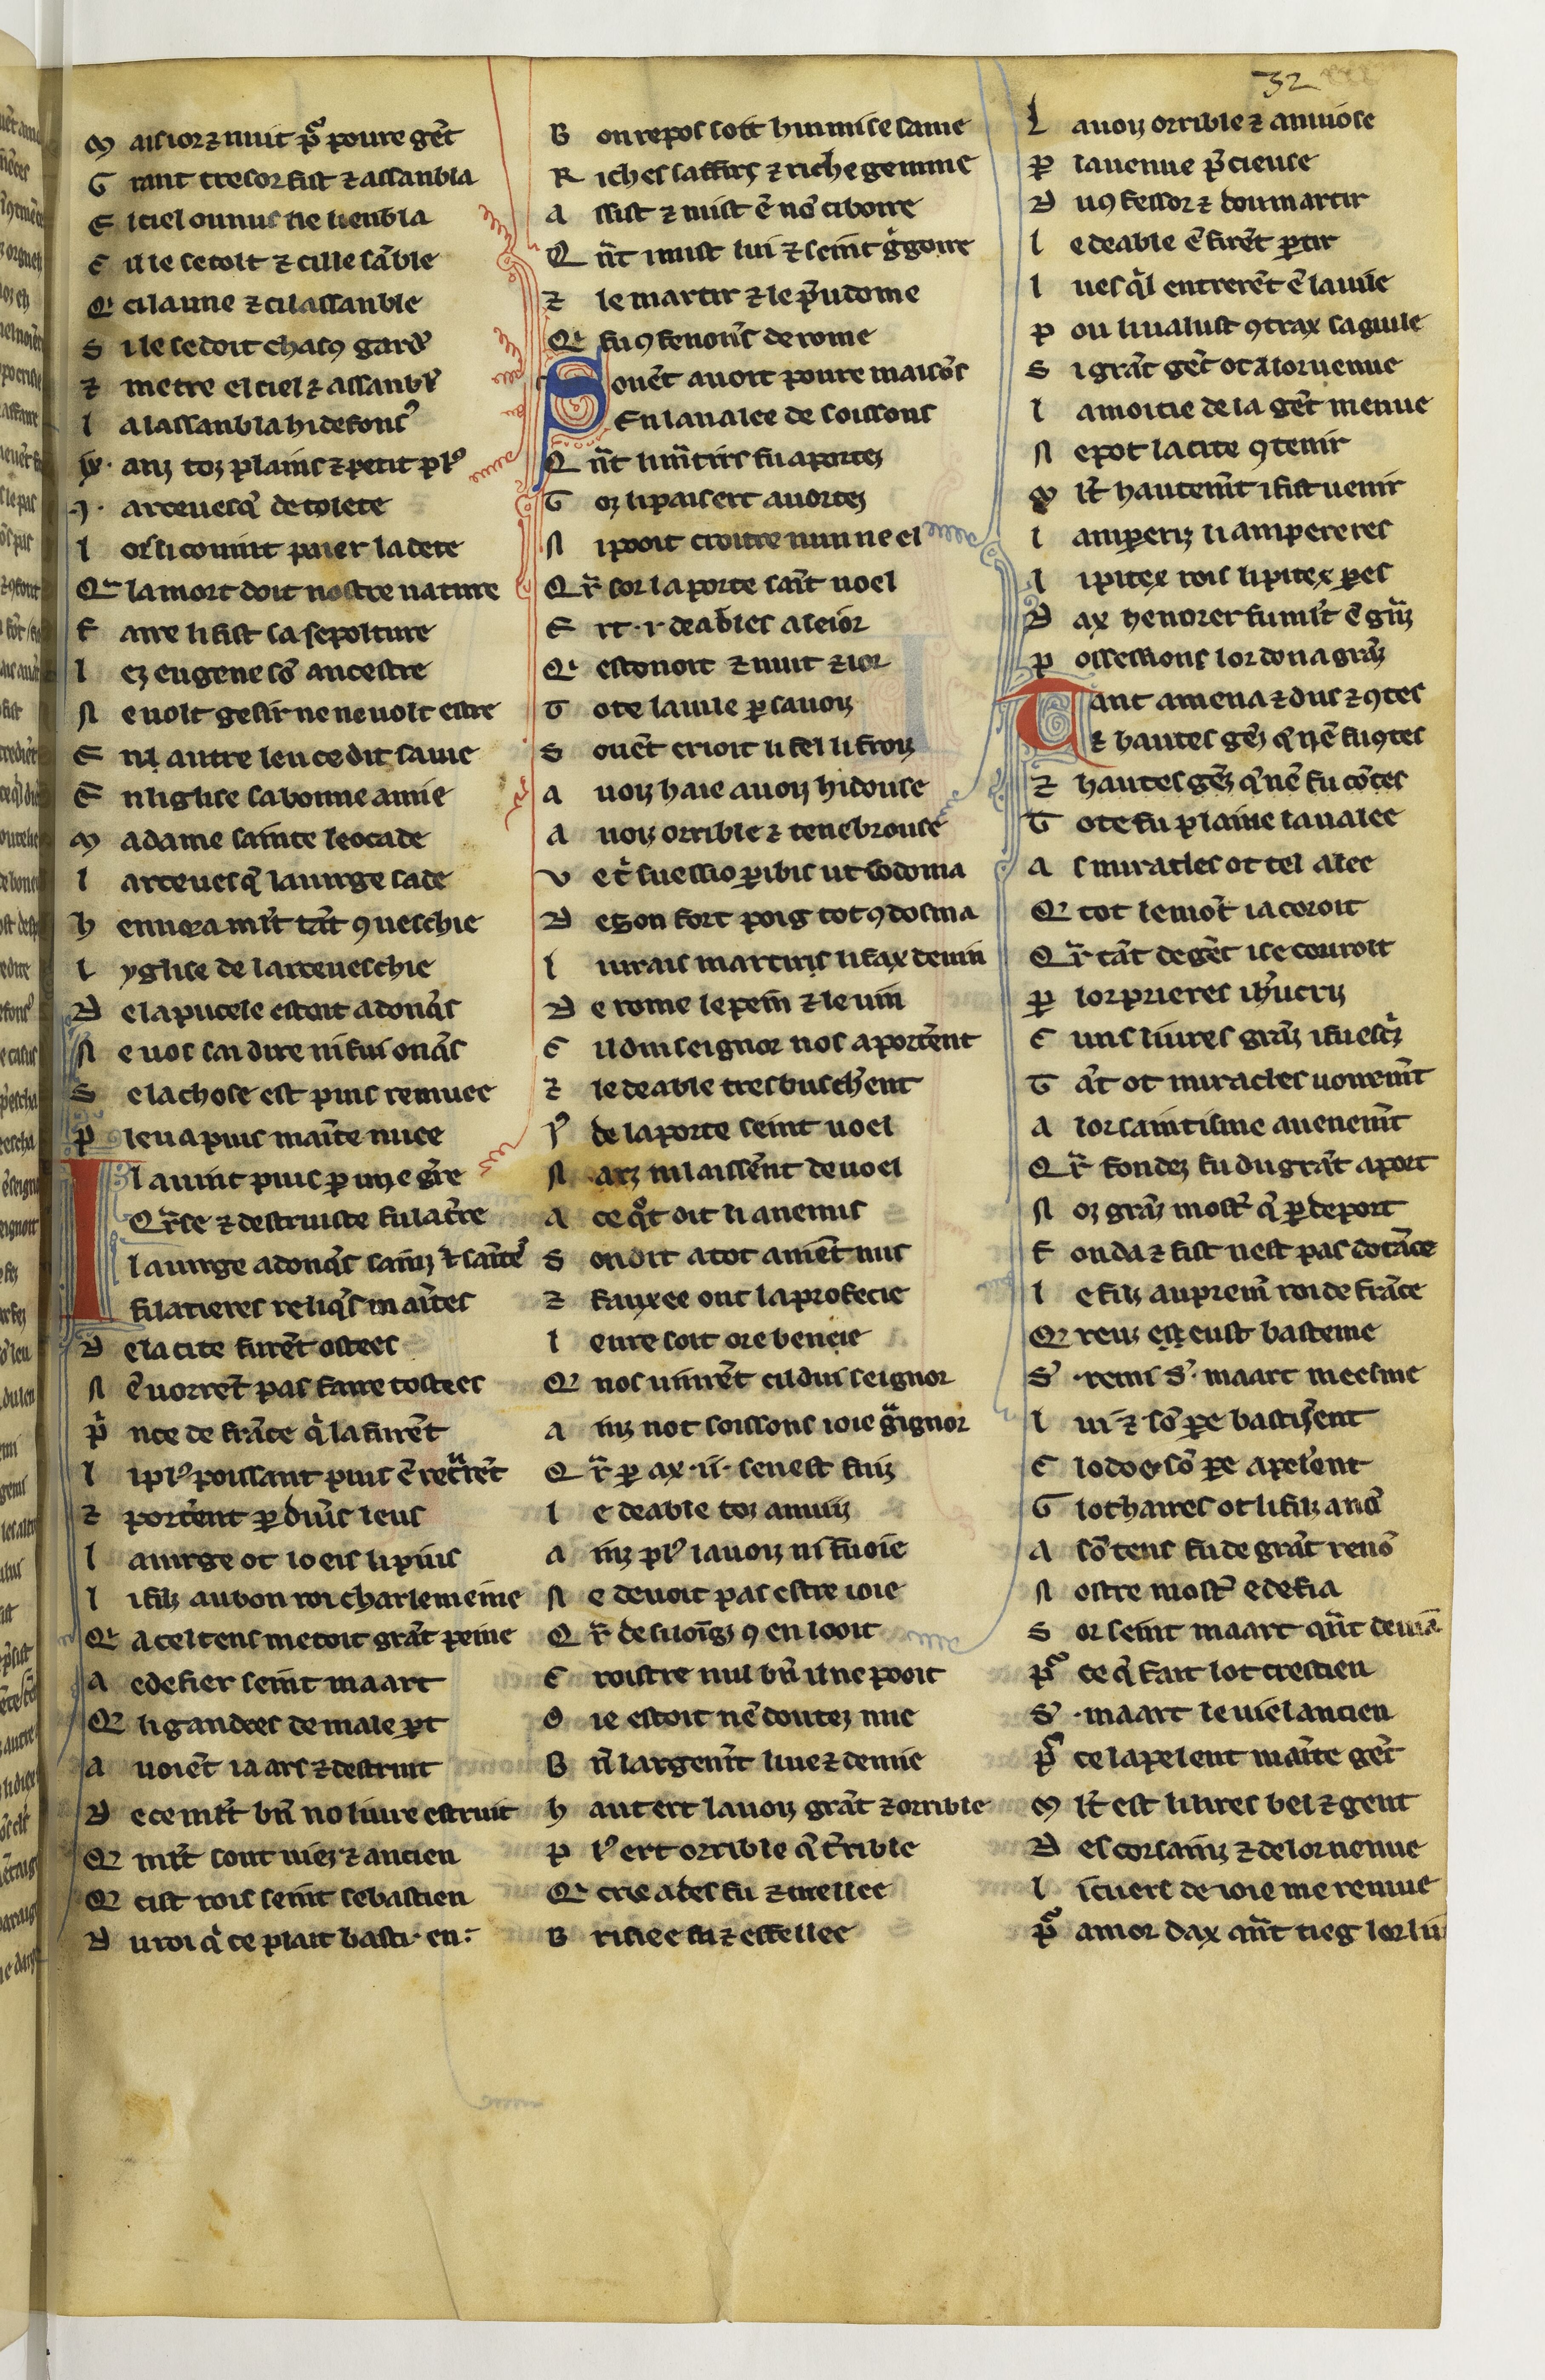 32
M aisior ⁊ nuit pͣ poure gẽt
G rant tresor fist ⁊ assanbla
E l ciel ou nus ne li enbla
C il le se toit ⁊ cille sãble
Q ci laune ⁊ ci lassanble
S i le se doit chasꝯ gardᵉ
⁊ metre el ciel ⁊ assanbrᵉ
l a lassanbla hidefonsꝰ
.ix. anz toz plains ⁊ petit plꝰ
.I. arceuesq̃ de tolete
l ors couint paier la dete
Q la mort doit nostre nature
F aire li fist sa sepolture
l ez eugene sõ ancestre
N e uolt gesir ne ne uolt estre
E nl autre leu ce dit sauis
E n liglise sa bonne amie
M adame sainte leocade
l arceuesq̃ la uirge sade
h ennora ml̃t tãt ꝯ uesch̃ie
l yglise de larceueschie
D e la pucele estoit adonq̃s
N e uos sai dire ni fui onq̃s
S e la chose est puis remues
P leu a puis mainte nuee
I l auint puis p̱ une gr̃re
Qr̃se ⁊ destruite fu la tr̃re
l a uirge adonq̃s sainz ⁊ saintꝰ
filatieres reliq̃s maĩtes
D e la cite furẽt ostees
N ẽ uorrẽt pas faire tostees
P̃ nce de frãce q̃ la furẽt
l i plꝰ poissant puis ẽ retͣirẽt
⁊ portẽent p̱ diũs leus
l a uirge ot loeis li pius
l i filz au bon roi charlemeine
Q a cel tens metoit grãt peine
A edefier seint maart
Q li gandres de male p̱t
A uoiẽt ia ars ⁊ destruit
D e ce ml̃t bñ no liure estruit
Q ml̃t sont uiez ⁊ ancien
Q cist rois seint sebastien
D u roi q̃ ce plait basti. en.
B on repos soit hui mise same
R iches saffirs ⁊ riche gemme
A ssist ⁊ mist ẽ nõ ciboire
Q ñt i mist lui ⁊ seint gͥgoire
⁊ le martir ⁊ le p̃udome
Q fu ꝯfenons de rome
S ouẽt auoit poure maisõs
En la ualee de soissons
Q ñt li m̃tirs fu aportez
T oz li pais ert auortez
N i pooit croitre nun ne el
Q r̃ sor la porte saĩt uoel
E rt .i. deables a seior
Q estonoit ⁊ nuit ⁊ ior
T ote la uile p̱ sauoiz
S ouẽt crioit li fel li froiz
A uoiz haie auoiz hidouse
A uoiz orrible ⁊ tenebrouse
V et̃ suessio p̱ibis ut sodoma
D eson fort poig tot ꝯdosma
l i urais martirs li fax deuin
D e rome le pem̃ ⁊ le uin
C il dui seignor nos aportẽent
⁊ le deable tresbuschẽent
Iꝰ de la porte seint uoel
N arz ni laissẽnt de uoel
A ce qͦt oit li anemis
S on dit a tot amẽt mis
⁊ fauxee ont la profecie
l eure soit ore beneie
Q nos uinrẽt cil dui seignor
A inz not soissons ioie gͣignor
Q r̃ p̱ ax .ii. sen est fuiz
l e deable toz anuiz
A inz plꝰ ia uoiz ni fu oie
N e deuoit pas estre ioie
Q r̃ de si loĩgz ꝯ en looit
C roistre nul bñ il ne pooit
O ie estoit nẽ doutez mie
B ñ largem̃t liue ⁊ demie
h aut ert lauoiz grãt ⁊ orrible
P lꝰ ert orrible q̃ tr̃rible
Q crie ades fu ⁊ melee
B risiee fu ⁊ effellee
L auoiz orrible ⁊ anuiose
P lauenue p̃cieuse
D u ꝯfessor ⁊ dou martir
l e deable ẽ firẽt p̱tir
l ues q̃l entrerẽt ẽ la uile
P ou li ualust ꝯtrax sa guile
S i grãt gẽt ot a lor uenue
l a moitie de la gẽt menue
N e pot la cite ꝯtenir
M l̃t hautem̃t i fist uenir
l amp̱eriz li ampereres
l i pitex rois li pitex p̱es
D ax henorer fu ml̃t ẽ grãz
P ossessions lor dona grãz
T ant amena ⁊ dus ⁊ ꝯtes
⁊ hautes gẽz q̃ nẽ fu ꝯtes
⁊ hautes gẽz q̃ nẽ fu cõtes
T ote fu plaine la ualee
A s miracles ot tel alee
Q tot le mõt ia coroit
Q r̃ tãt de gẽt ise couroit
P̱ lor prieres ih̃ucriz
C uns liures grãz i fu escͥz
T ãt ot miracles uoirem̃t
A lor saintisme auenem̃t
Q r̃ fondez fu du grãt aport
N oz grãz mostͥ q̃ p̱ deport
F onda ⁊ fist nest pas dotãce
l e filz au prem̃ roi de frãce
Q reuz est eust basteme
Sꝰ .remi Sꝰ. maart meesme
l ui ⁊ sõ p̱e bastisẽnt
C lodoes sõ p̱e apelẽnt
G lothaires ot li filz anõ
A sõ tens fu de grãt renõ
N ostre mostͥ edefia
S or seint maart qñt deuiã
Pͣ ce q̃ fait lot crestien
Sꝰ .maart le uiel ancien
Pͣ ce lapelent maĩte gẽt
M l̃t est li liures bel ⁊ gent
D es corsainz ⁊ de lor uenue
l i cuers de ioie me remue
Pͣ amor dax qñt tieg lor liu